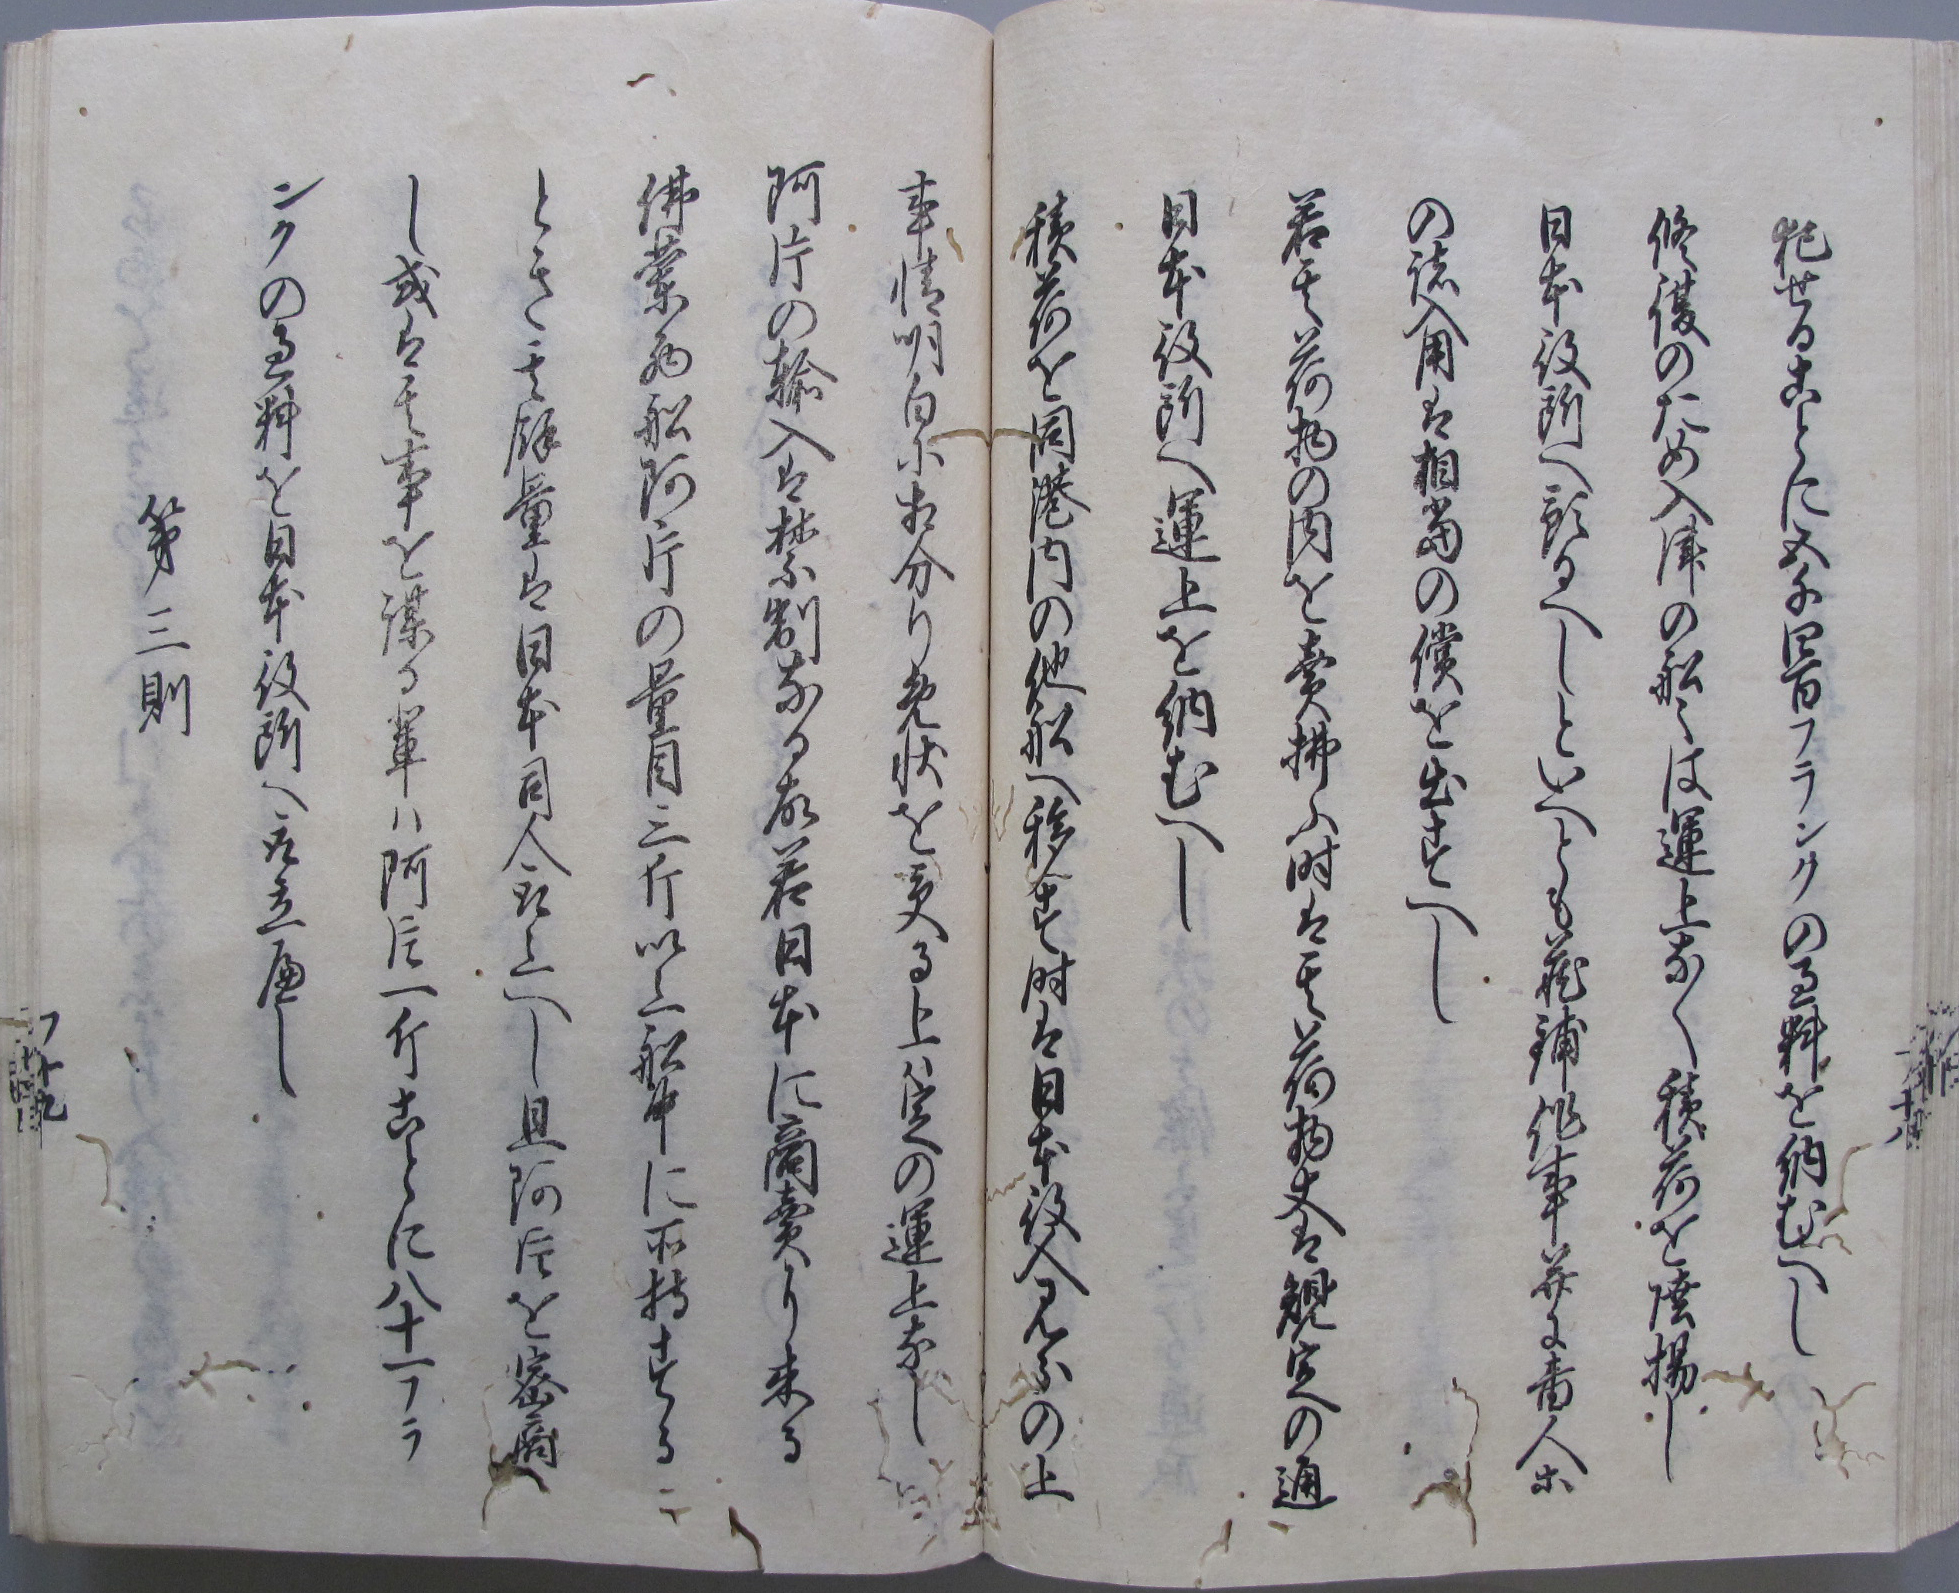 犯せることに五千四百フランクの過料を納むへし
修復のため入津の船々は運上なく積荷を陸揚し
日本役所へ預るへしといへとも蔵鋪作事并に番人等
の諸入用は相当の償を出すへし
若其荷物の内を賣拂ふ时は其荷物丈は規定の通
日本役所へ運上を納むへし
積荷を同港内の他船へ移す时は日本役人見分の上
事情明白に相分り免状を受る上ハ定の運上なし
阿片の輸入は禁制なる故若日本に商賣に来る
佛蘭西船阿片の量目三斤以上船中に所持する
ときは其餘量は日本司人取上へし且阿片を密商
し或は其事を謀る輩ハ阿片一斤ことに八十一フラ
ンクの過料を日本役所へ取立へし
第三則